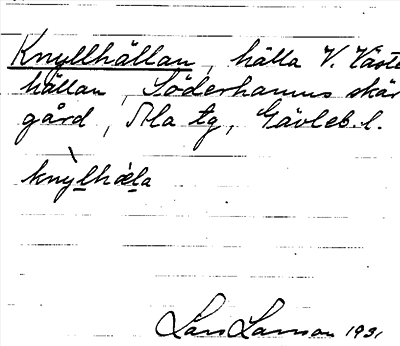 Knyllhällan, hälla V. Väste
hällan, Söderhamns skär
gård, Ala tg, Gävleb. l.
knylhæla
Lars Larsson 1931